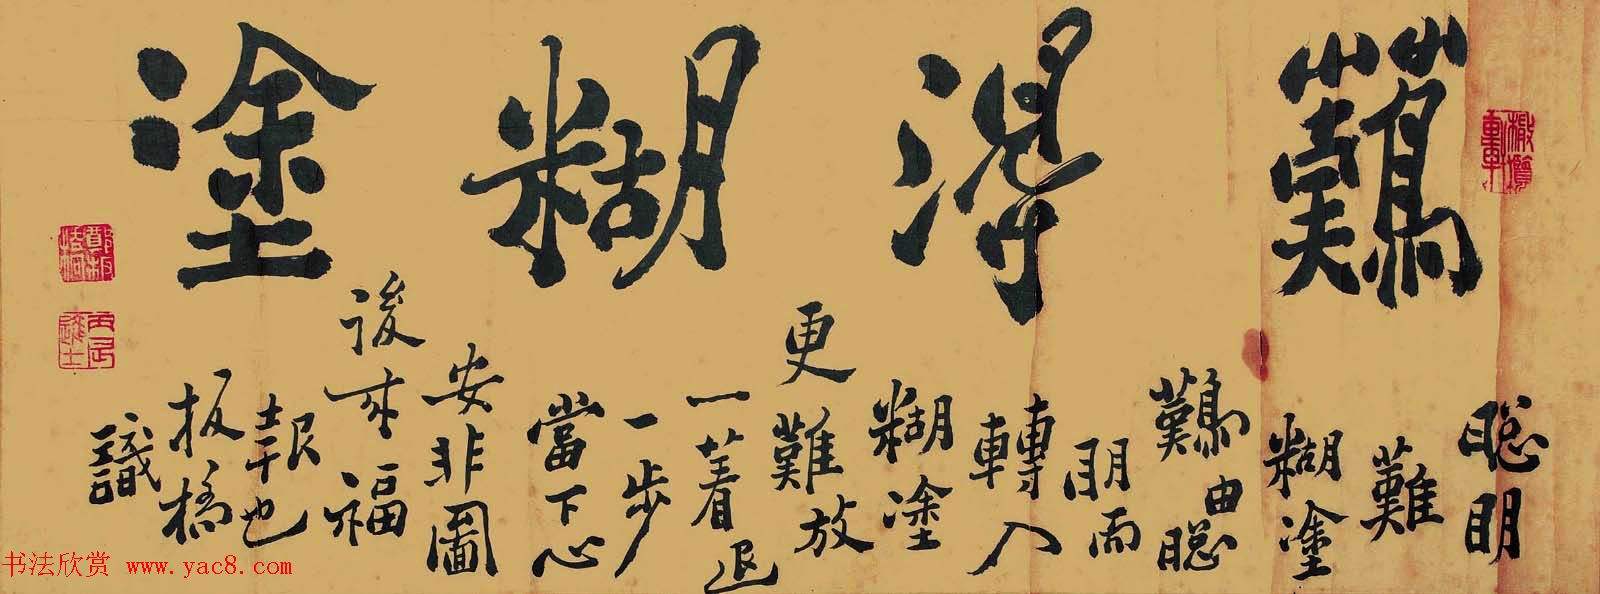 難得糊塗
聰明
難
糊塗
難由聰
明而
轉入
糊塗
更難放
一着退
一步
當下心
安非圖
後來福
報也
板橋
識
橄欖軒
鄭板橋
书法欣赏 www.yac8.com